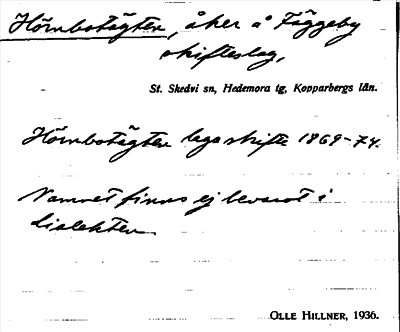 Hörnbotägten, åker å Fäggeby
skifteslag,
St. Skedvi sn, Hedemora tg, Kopparbergs län.
Hörnbotägten laga skifte 1869-74.
Namnet finns ej bevarat i
dialekten
OLLE HILLNER, 1936.